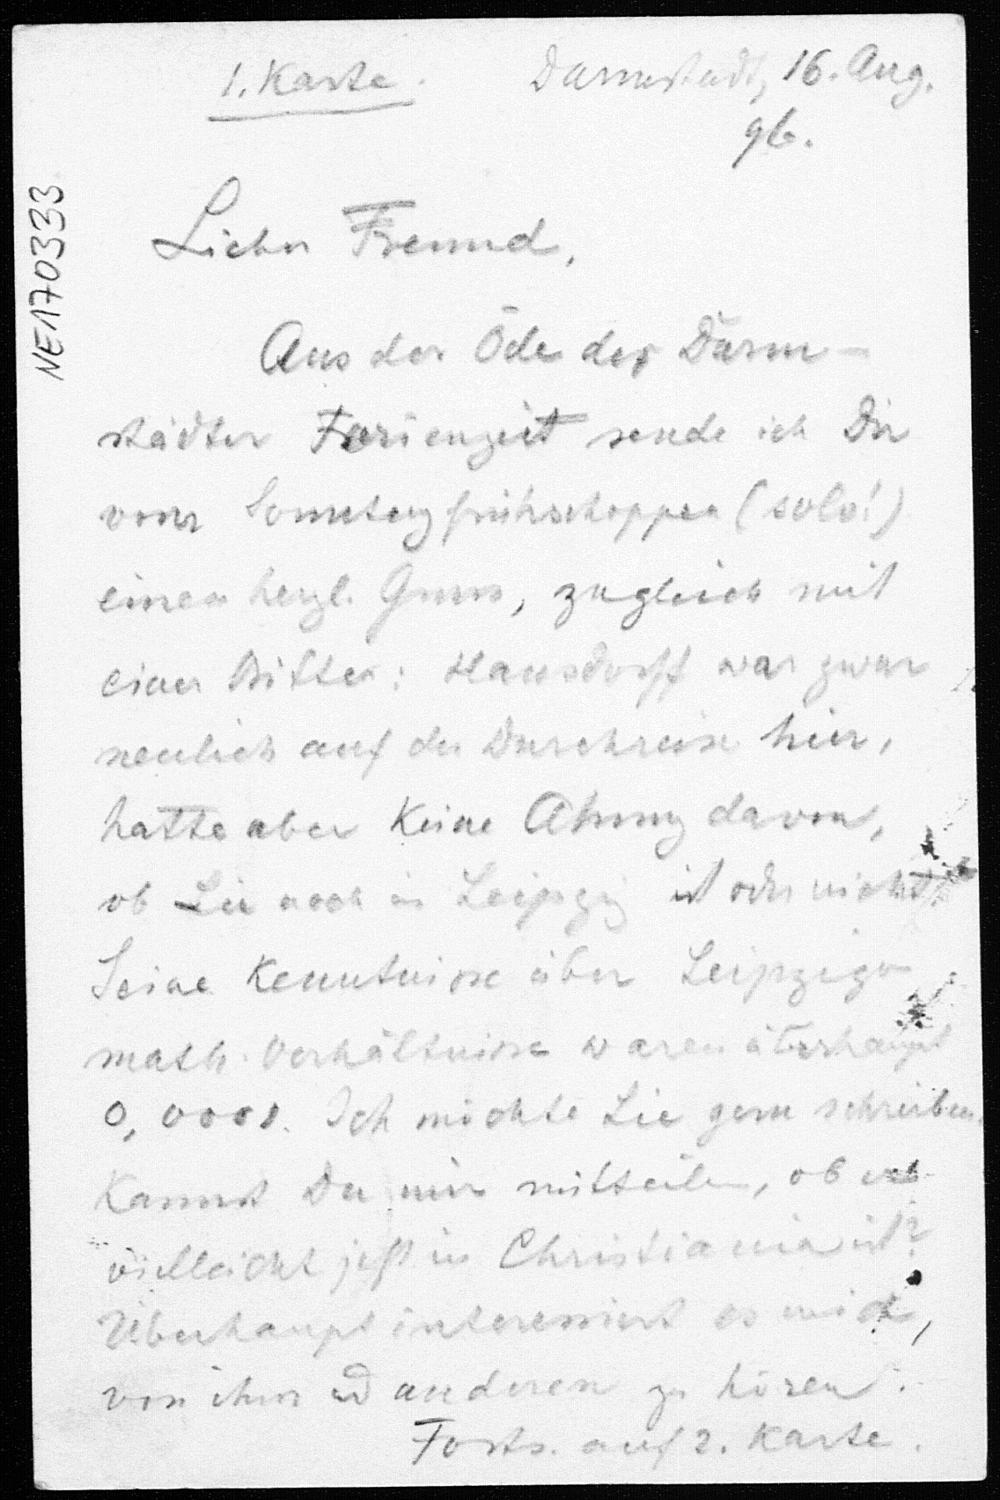 1. Karte. Darmstadt, 16. Aug.
96.
NE170333
Lieber Freund,
Aus der Öde der Darm-
städter Ferienzeit sende ich Dir
vom Sonntagfrühschoppen (solo!)
einen herzl. Gruss, zugleich mit
einer Bitte: Hausdorff war zwar
neulich auf der Durchreise hier,
hatte aber keine Ahnung davon,
ob Lie noch in Leipzig ist oder nicht.
Seine Kenntnisse über Leipziger
math. Verhältnisse waren überhaupt
0,0001. Ich möchte Lie gern schreiben.
Kannst Du mir mitteilen, ob er
vielleicht jetzt in Christiania ist?
Überhaupt interessiert es mich,
von ihm und anderen zu hören.
Forts. auf 2. Karte.